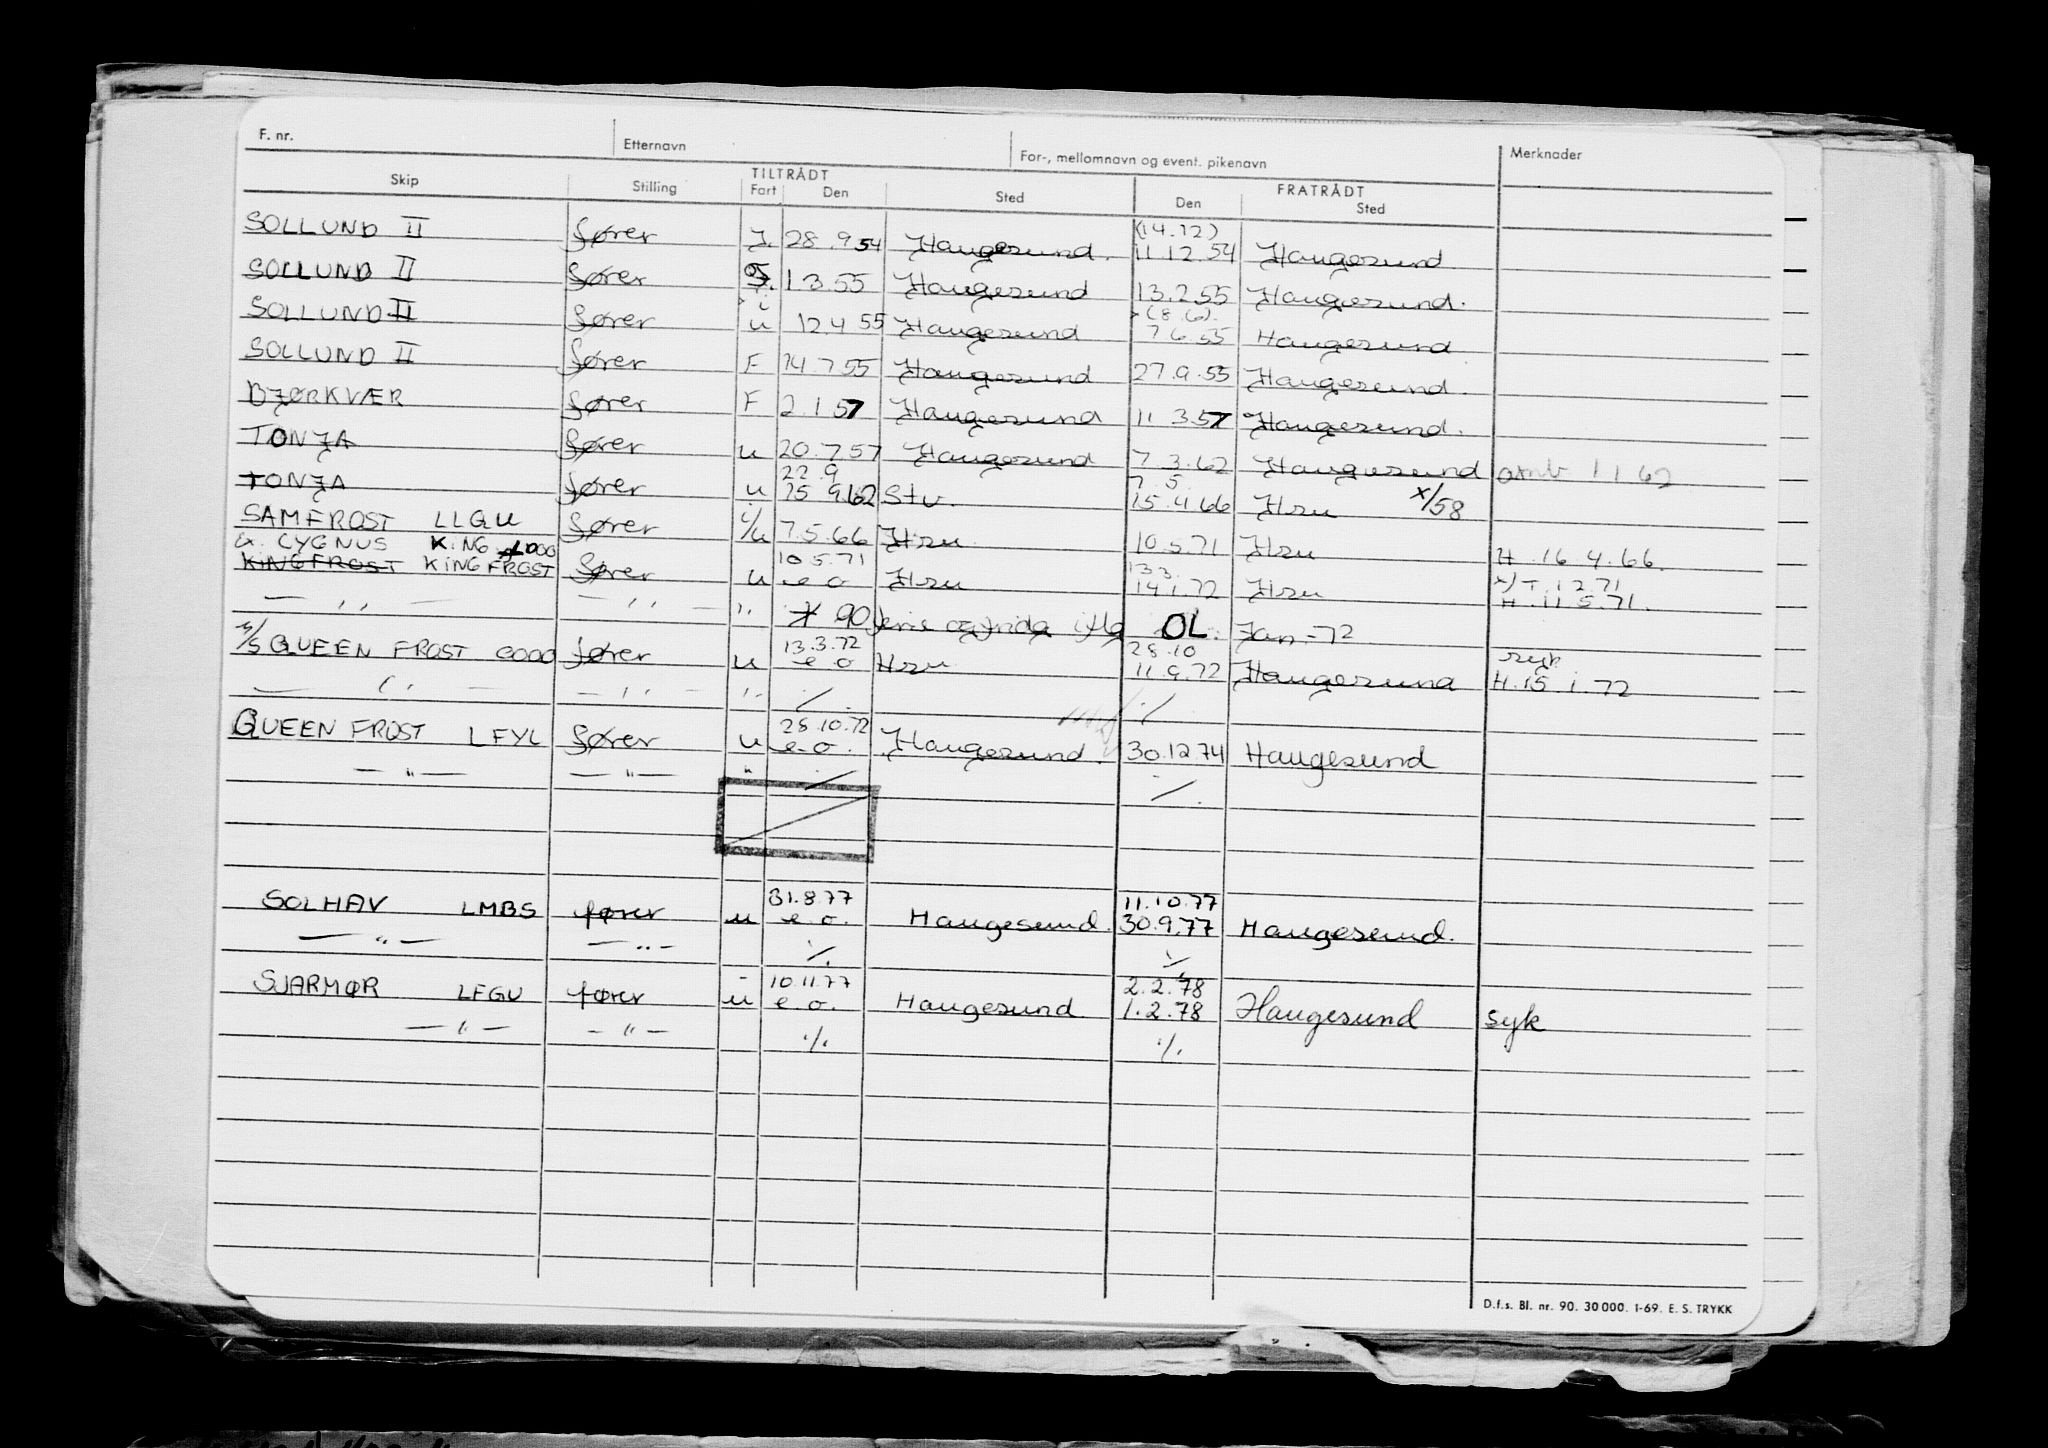 F. nr. Etternavn For-, mellomnavn og event. pikenavn Merknader
Skip Stilling TILTRÅDT Fart Den Sted FRATRÅDT Den Sted
SOLLUND II fører J. 28.9 54 Haugesund. (14.12) 11.12.54 Haugesund
SOLLUND II fører 1 3.55 Haugesund 13.2 55 Haugesund.
SOLLUND II fører i u 12.4 55 Haugesund (8.6). 7 6 55 Haugesund
SOLLUND II fører F 14.7 55 Haugesund 27.9.55 Haugesund.
BJØRKVÆR fører F 2.1 57 Haugesund 11 3.57 Haugesund.
TONJA fører u 20.7.57 Haugesund 7.3.62 Haugesund 1 1 62
TONJA fører u 22.9 25 9.62 Stv. 7.5. 15.4.66 Hsu x/58
SAMFROST LLGU fører i/u 7.5.66 Hsu 10.5.71 Hsu H. 16.4.66.
ex. CYGNUS KING
KINGFROST KING FROST fører u 10.5.71 e o Hsu 13 3. 14.1.72 Hsu x) T. 12.71 H. 11 5.71.
— ,, — — ,, — ,, 90 OL. Jan -72
M/S QUEEN FROST 0000 fører u 13.3.72 e o Hsu 28.10 11.9.72 Haugesund syk H.15.1.72
— ,, — — ,, — ,, ./. ./.
QUEEN FROST LFYL fører u 28.10.72 e.o. Haugesund. 30.12.74 Haugesund
— " — — " — " ./. ./.
SOLHAV LMBS fører u 31.8.77 e.o. Haugesund. 11.10.77 30.9.77 Haugesund.
— " — — " — ./. ./.
SJARMØR LFGU fører - u 10.11.77 e.o. Haugesund 2.2.78 1.2.78 Haugesund syk
— " — — " — ./. ./.
D.f.s. Bl. nr. 90. 30 000. 1-69. E. S. TRYKK